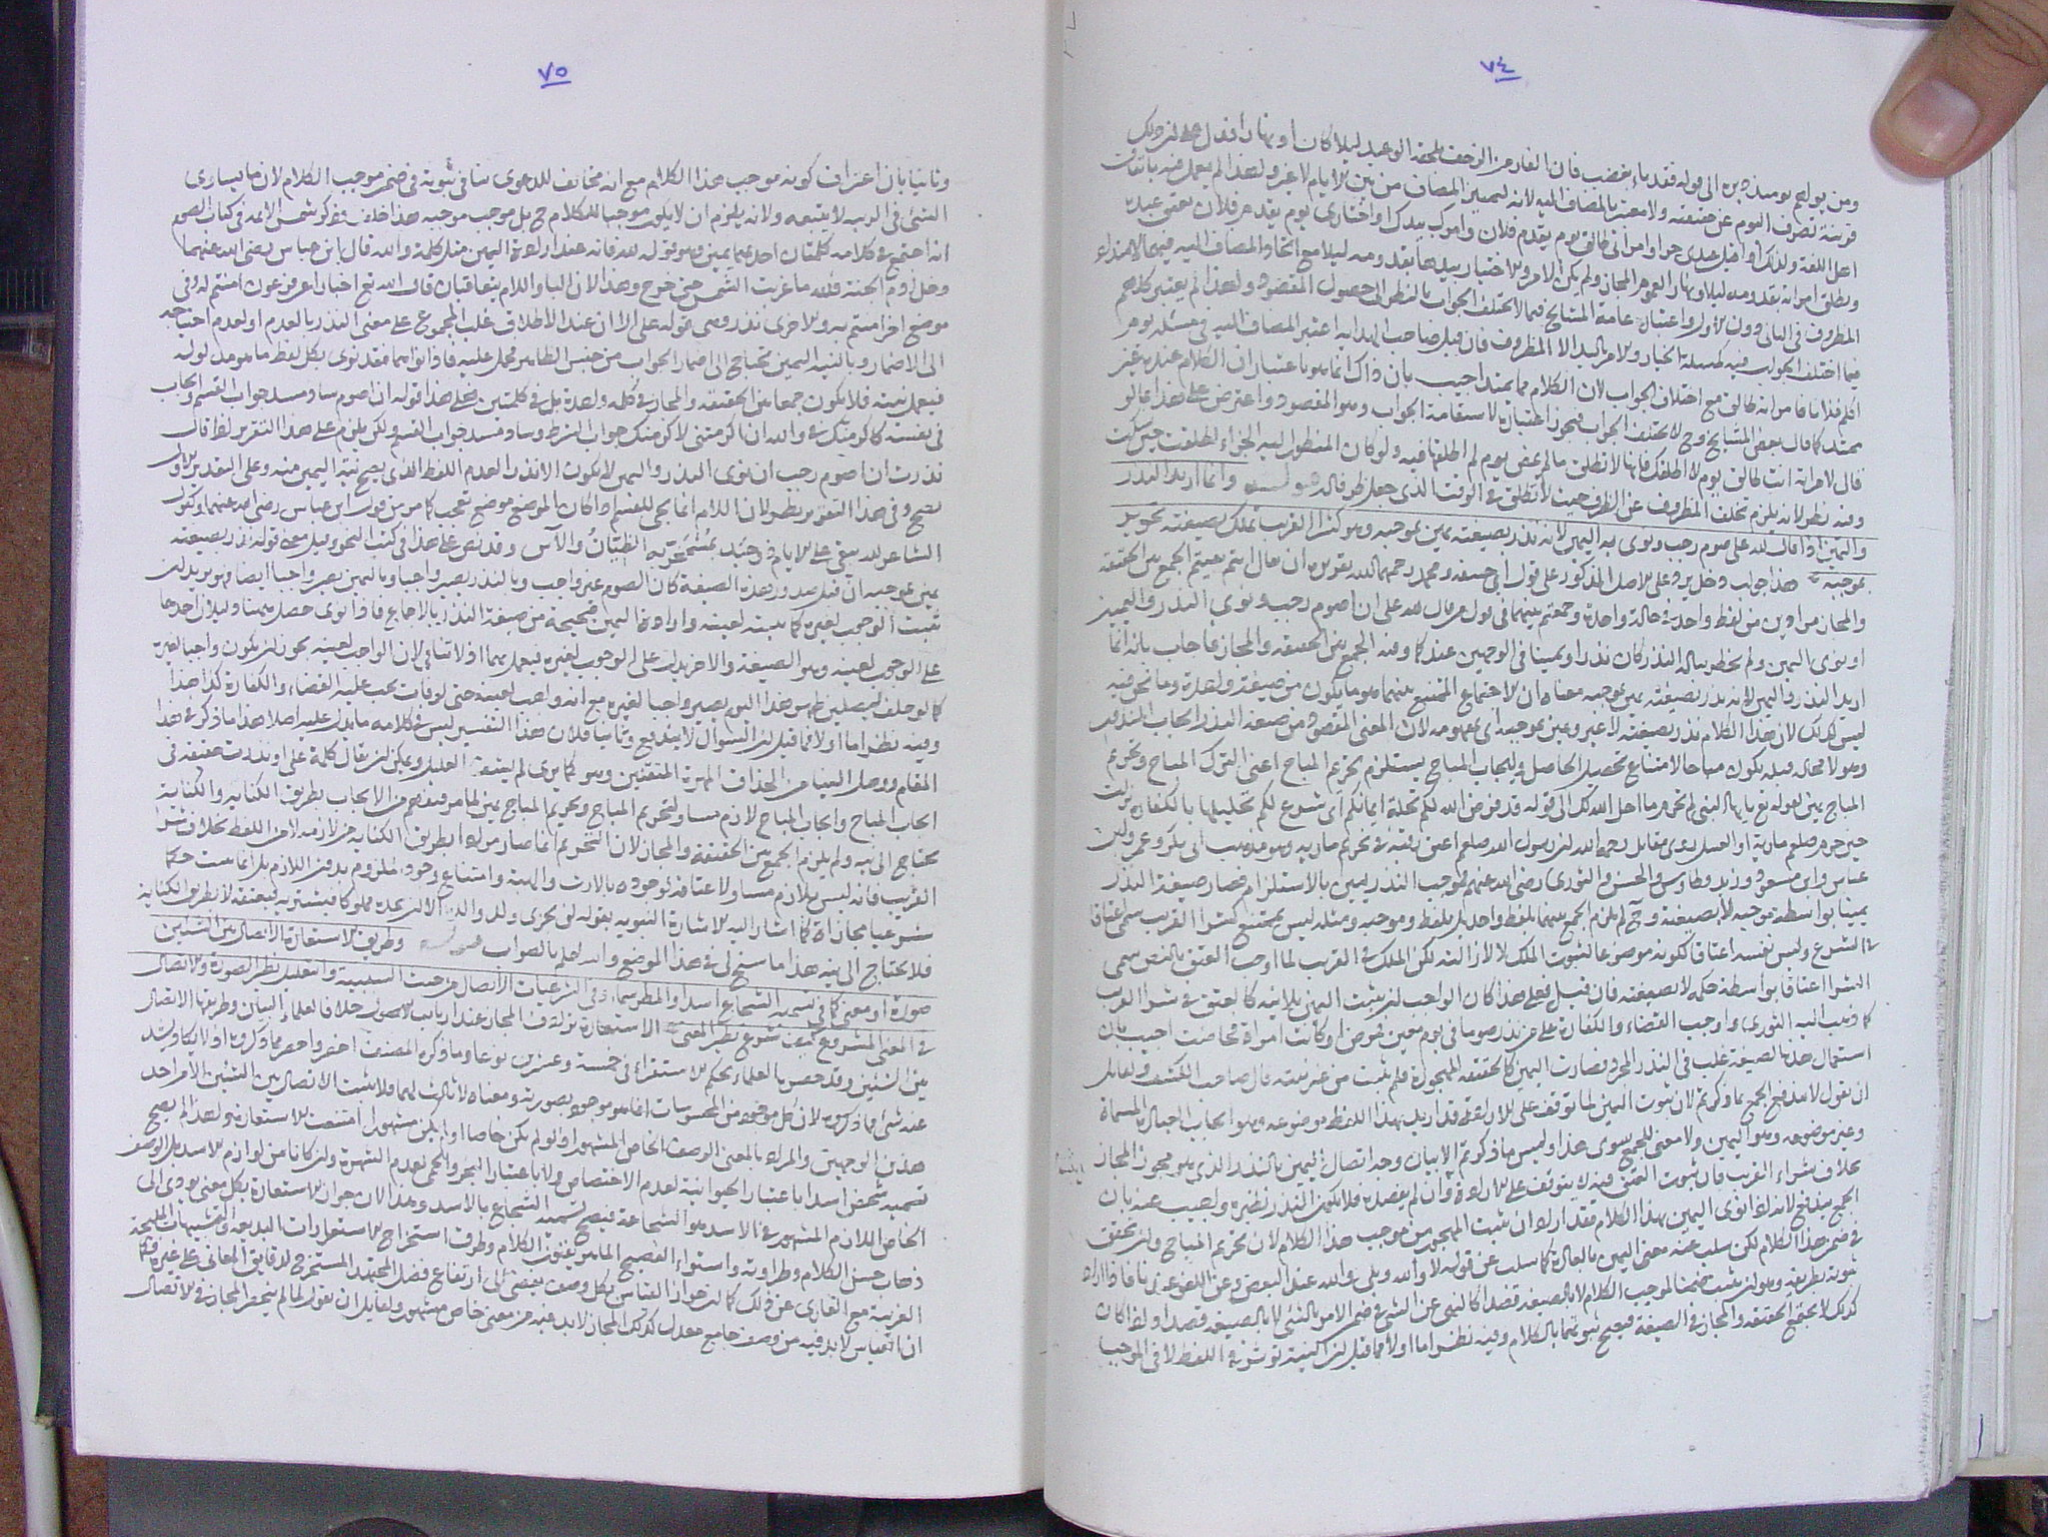 ٧٤
ومن يولهم يومئذ دبره الى قوله فقد باء بغضب فان الفار من الزحف يلحقه الوعيد ليلا كان او نهارا فدل على ان ذلك
قرينة تصرف اليوم عن حقيقته ولا معتبر بالمضاف اليه لانه لتمييز المضاف من بين الايام لا غير ولهذا لم يعمل فيه باتفاق
اهل اللغة
يوم يقدم فلان وامرك بيدك او اختاري يوم يقدم فلان
المظروف في الثاني دون الاول واعتبار عامة المشايخ فيما لا يختلف الجواب بالنظر الى حصول المقصود ولهذا لم يعتبر كلهم
فيما اختلف الجواب فيه كمسئلة الخيار والامر باليد الا المظروف فان قيل صاحب الهداية اعتبر المضاف اليه في مسئلة يوم
اكلم فلانا فامرأته طالق مع اختلاف الجواب لان الكلام مما يمتد اجيب بان ذاك انما هو باعتبار ان الكلام عنده غير
ممتد كما قال بعض المشايخ وح لا يختلف الجواب فيجوز اعتباره لاستقامة الجواب وهو المقصود واعترض على هذا بما لو
قال لامرأته انت طالق يوم لا اطلقك فانها لا تطلق ما لم يمض يوم لم يطلقها فيه ولو كان المنظور اليه الجزاء لطلقت حين سكت
وفيه نظر لانه يلزم تخلف المظروف عن الظرف حيث لا تطلق في الوقت الذي جعل ظرفا له وانما اريد النذر
واليمين اذا قال لله علي صوم رجب ونوى به اليمين لانه نذر بصيغته يمين بموجبه وهو كشراء القريب تملك بصيغته تحرير
بموجبه هذا جواب دخل يرد على الاصل المذكور على قول ابي حنيفة ومحمد رحمهما الله تقريره ان يقال انتم منعتم الجمع بين الحقيقة
والمجاز مرادين من لفظ واحد في حالة واحدة وجمعتم بينهما في قول من قال لله علي ان اصوم رجب ونوى النذر واليمين
او نوى اليمين ولم يخطر بباله النذر كان نذرا ويمينا في الوجهين عندكما وفيه الجمع بين الحقيقة والمجاز فاجاب بانه انما
اريد النذر واليمين لانه نذر بصيغته يمين بموجبه معناه ان الاجتماع الممتنع بينهما هو ما يكون من صيغة واحدة وما نحن فيه
ليس كذلك لان هذا الكلام نذر بصيغته لا غير ويمين بموجبه اي بمفهومه لان المعنى المقصود من صيغة النذر ايجاب المنذور
وهو لا محالة قبله يكون مباحا لامتناع تحصيل الحاصل وايجاب المباح يستلزم تحريم المباح اعني الترك المباح وتحريم
المباح يمين لقوله تع يا ايها النبي لم تحرم ما احل الله لك الى قوله قد فرض الله لكم تحلة ايمانكم اي شرع لكم تحليلها بالكفارة نزلت
حين حرم صلعم مارية او العسل روى مقاتل رحمه الله ان رسول الله صلعم اعتق رقبة في تحريم مارية وهو مذهب ابي بكر وعمر وابن
عباس وابن مسعود وزيد وطاوس والحسن والثوري رضي الله عنهم فموجب النذر يمين بالاستلزام فصار صيغة النذر
يمينا بواسطة موجبه لا بصيغته وح لم يلزم الجمع بينهما بلفظ واحد بل بلفظ وموجبه ومثله ليس بممتنع كشراء القريب سمي اعتاقا
في الشرع وليس نفسه اعتاقا لكونه موضوعا لثبوت الملك لا لازالته لكن الملك في القريب لما اوجب العتق بالنص سمي
الشراء اعتاقا بواسطة حكمه لا بصيغته فان قيل فعلى هذا كان الواجب ان يثبت اليمين بلا نية كالعتق في شراء القريب
كما ذهب اليه الثوري واوجب القضاء والكفارة على من نذر صوما في يوم معين فمرض او كانت امرأة فحاضت اجيب بان
استعمال هذه الصيغة غلب في النذر المجرد فصارت اليمين كالحقيقة المهجورة فلم يثبت من غير نيته قال صاحب الكشف ولقائل
ان يقول لا يندفع الجمع بما ذكرتم لان ثبوت اليمين لما توقف على الارادة فقد اريد بهذا اللفظ موضوعه وهو ايجاب العبادة المسماة
وغير موضوعه وهو اليمين ولا معنى للجمع سوى هذا وليس ما ذكرتم الا بيان وجه اتصال اليمين بالنذر الذي هو مجوز المجاز
بخلاف شراء القريب فان ثبوت العتق فيه لا يتوقف على الارادة وان لم يقصده فلا يكون النذر نظيره واجيب عنه بان
الجمع مندفع لانه لما نوى اليمين بهذا الكلام فقد اراد ان يثبت المهجور من موجب هذا الكلام لان تحريم المباح وان تحقق
في ضمن هذا الكلام لكن سلب عنه معنى اليمين بالعادة كما سلب عن قوله لا والله وبلى والله عند البعض
ثبوته بطريقه وهو ان يثبت ضمنا لموجب الكلام لا بالصيغة قصدا كالنهي عن الشيء في ضمن الامر بالشيء لا بالصيغة قصدا واذا كان
كذلك لا يجتمع الحقيقة والمجاز في الصيغة فيصح ثبوتهما بالكلام وفيه نظر اما اولا فما قيل ان النية توثر في اللفظ لا في الموجب
٧٥
وثانيا بان اعتراف كونه موجب هذا الكلام مع انه مخالف للدعوى ينافي ثبوته في ضمن موجب الكلام لان ما يساوي
الشيء في الرتبه لا يتبعه ولانه يلزم ان لا يكون موجبا للكلام ح بل موجب موجبه هذا خلف وذكر شمس الائمة في كتاب الصوم
انه اجتمع في كلامه كلمتان احدهما يمين وهو قوله لله فانه عند ارادة اليمين مثل كلمة والله قال ابن عباس رضي الله عنهما
دخل ادم الجنة فلله ما غربت الشمس حتى خرج وهذا لان الباء واللام يتعاقبان قال الله تع اخبارا عن فرعون امنتم له وفي
موضع اخر امنتم به والاخرى نذر وهي قوله علي الا ان عند الاطلاق غلب المجموع على معنى النذر
الى الاضمار وبالنية اليمين تحتاج الى اضمار الجواب من جنس الظاهر فحمل عليه فاذا نواهما فقد نوى بكل لفظ ما هو مدلوله
فيعمل بنيته فلا يكون جمعا بين الحقيقة والمجاز في كلمة واحدة بل في كلمتين فعلى هذا قوله ان اصوم ساد مسد جواب القسم وايجاب
في نفسه كاكرمتك في والله ان اكرمتني لاكرمنك جواب الشرط وساد مسد جواب القسم ولكن يلزم على هذا التقرير لو قال
نذرت ان اصوم رجب ان نوى النذر واليمين لا يكون الا نذرا لعدم اللفظ الذي يصح نية اليمين منه وعلى التقدير الاول
يصح وفي هذا التقرير نظر لان اللام انما يجيء للقسم اذا كان الموضع موضع تعجب كما مر من قول ابن عباس رضي الله عنهما وكقول
الشاعر لله يبقى على الايام ذو حيد بمشمخر به الظيان والآس وقد نص على هذا في كتب النحو وقيل معنى قوله نذر بصيغته
يمين بموجبه ان قبل صدور هذه الصيغة كان الصوم غير واجب وبالنذر يصير واجبا وباليمين يصير واجبا ايضا
يثبت الوجوب لغيره كما يثبته لعينه وارادة اليمين صحيحة من صيغة النذر بالاجماع فاذا نوى حصل يمينا
على الوجوب لعينه وهو الصيغة والاخر يدل على الوجوب لغيره فيعمل بهما اذ لا تنافي لان الواجب لعينه يجوز ان يكون واجبا لغيره
كما لو حلف ليصلين ظهر هذا اليوم يصير واجبا لغيره مع انه واجب لعينه حتى لو فات يجب عليه القضاء والكفارة كذا هذا
وفيه نظر اما اولا فما قيل ان السؤال لا يندفع وثانيا فلان هذا التفسير ليس في كلامه ما يدل عليه اصلا هذا ما ذكر في هذا
المقام ووصل الينا من الحذاق المهرة المتقنين وهو كما يرى لم يشف الغليل ويمكن ان يقال كلمة علي او نذرت حقيقة في
ايجاب المباح وايجاب المباح لازم مساو لتحريم المباح وتحريم المباح يمين لما مر فيفهم من الايجاب بطريق الكناية والكناية
تحتاج الى نية ولم يلزم الجمع بين الحقيقة والمجاز لان التحريم انما صار مرادا بطريق الكناية من لازمه لا من اللفظ بخلاف شراء
القريب فانه ليس بلازم مساو لاعتاقه لوجوده بالارث والهبة وامتناع وجود الملزوم بدون اللازم بل انما يثبت حكما
شرعيا مجازاة كما اشار اليه الاشارة النبوية بقوله لن يجزى ولد والده الا ان يجده مملوكا فيشتريه فيعتقه لا بطريق الكناية
فلا يحتاج الى نية هذا ما سنح لي في هذا الموضع والله اعلم بالصواب وطريق الاستعارة الاتصال بين الشيئين
صورة او معنى كما في تسمية الشجاع اسدا والمطر سماء وفي الشرعيات الاتصال من حيث السببية والتعليل نظير الصورة والاتصال
في المعنى المشروع كيف شرع نظير المعنى الاستعارة ترادف المجاز عند ارباب الاصول خلافا لعلماء البيان وطريقها الاتصال
بين الشيئين وقد حصره العلماء بحكم الاستقراء في خمسة وعشرين نوعا وما ذكره المصنف اخصر واحصر مما ذكروه اذ لا يكاد يشذ
عنه شيء مما ذكروه لان كل موجود من المحسوسات انما هو موجود بصورته ومعناه لا ثالث لهما فلا يثبت الاتصال بين الشيئين الا من احد
هذين الوجهين والمراد بالمعنى الوصف الخاص المشهور اذ لو لم يكن خاصا او لم يكن مشهورا امتنعت الاستعارة ولهذا لم يصح
تسمية شخص اسدا باعتبار الحيوانية لعدم الاختصاص ولا باعتبار البخر والحمى لعدم الشهرة وان كانا من لوازم الاسد بل الوصف
الخاص اللازم المشهور في الاسد هو الشجاعة فيصح تسمية الشجاع بالاسد وهذا لان جواز الاستعارة بكل معنى يودي الى
ذهاب حسن الكلام وطراوته واستواء الفصيح الماهر بفنون الكلام وطرق استخراج الاستعارات البديعة والتشبيهات المليحة
الغريبة مع العاري عن ذلك كما ان جواز القياس بكل وصف يفضي الى ارتفاع فضل المجتهد المستخرج لدقايق المعاني على غيره
ان القياس لا بد فيه من وصف جامع معدل كذلك المجاز لا بد فيه من معنى خاص مشهور ولقائل ان يقول لما لم ينحصر المجاز في الاتصال